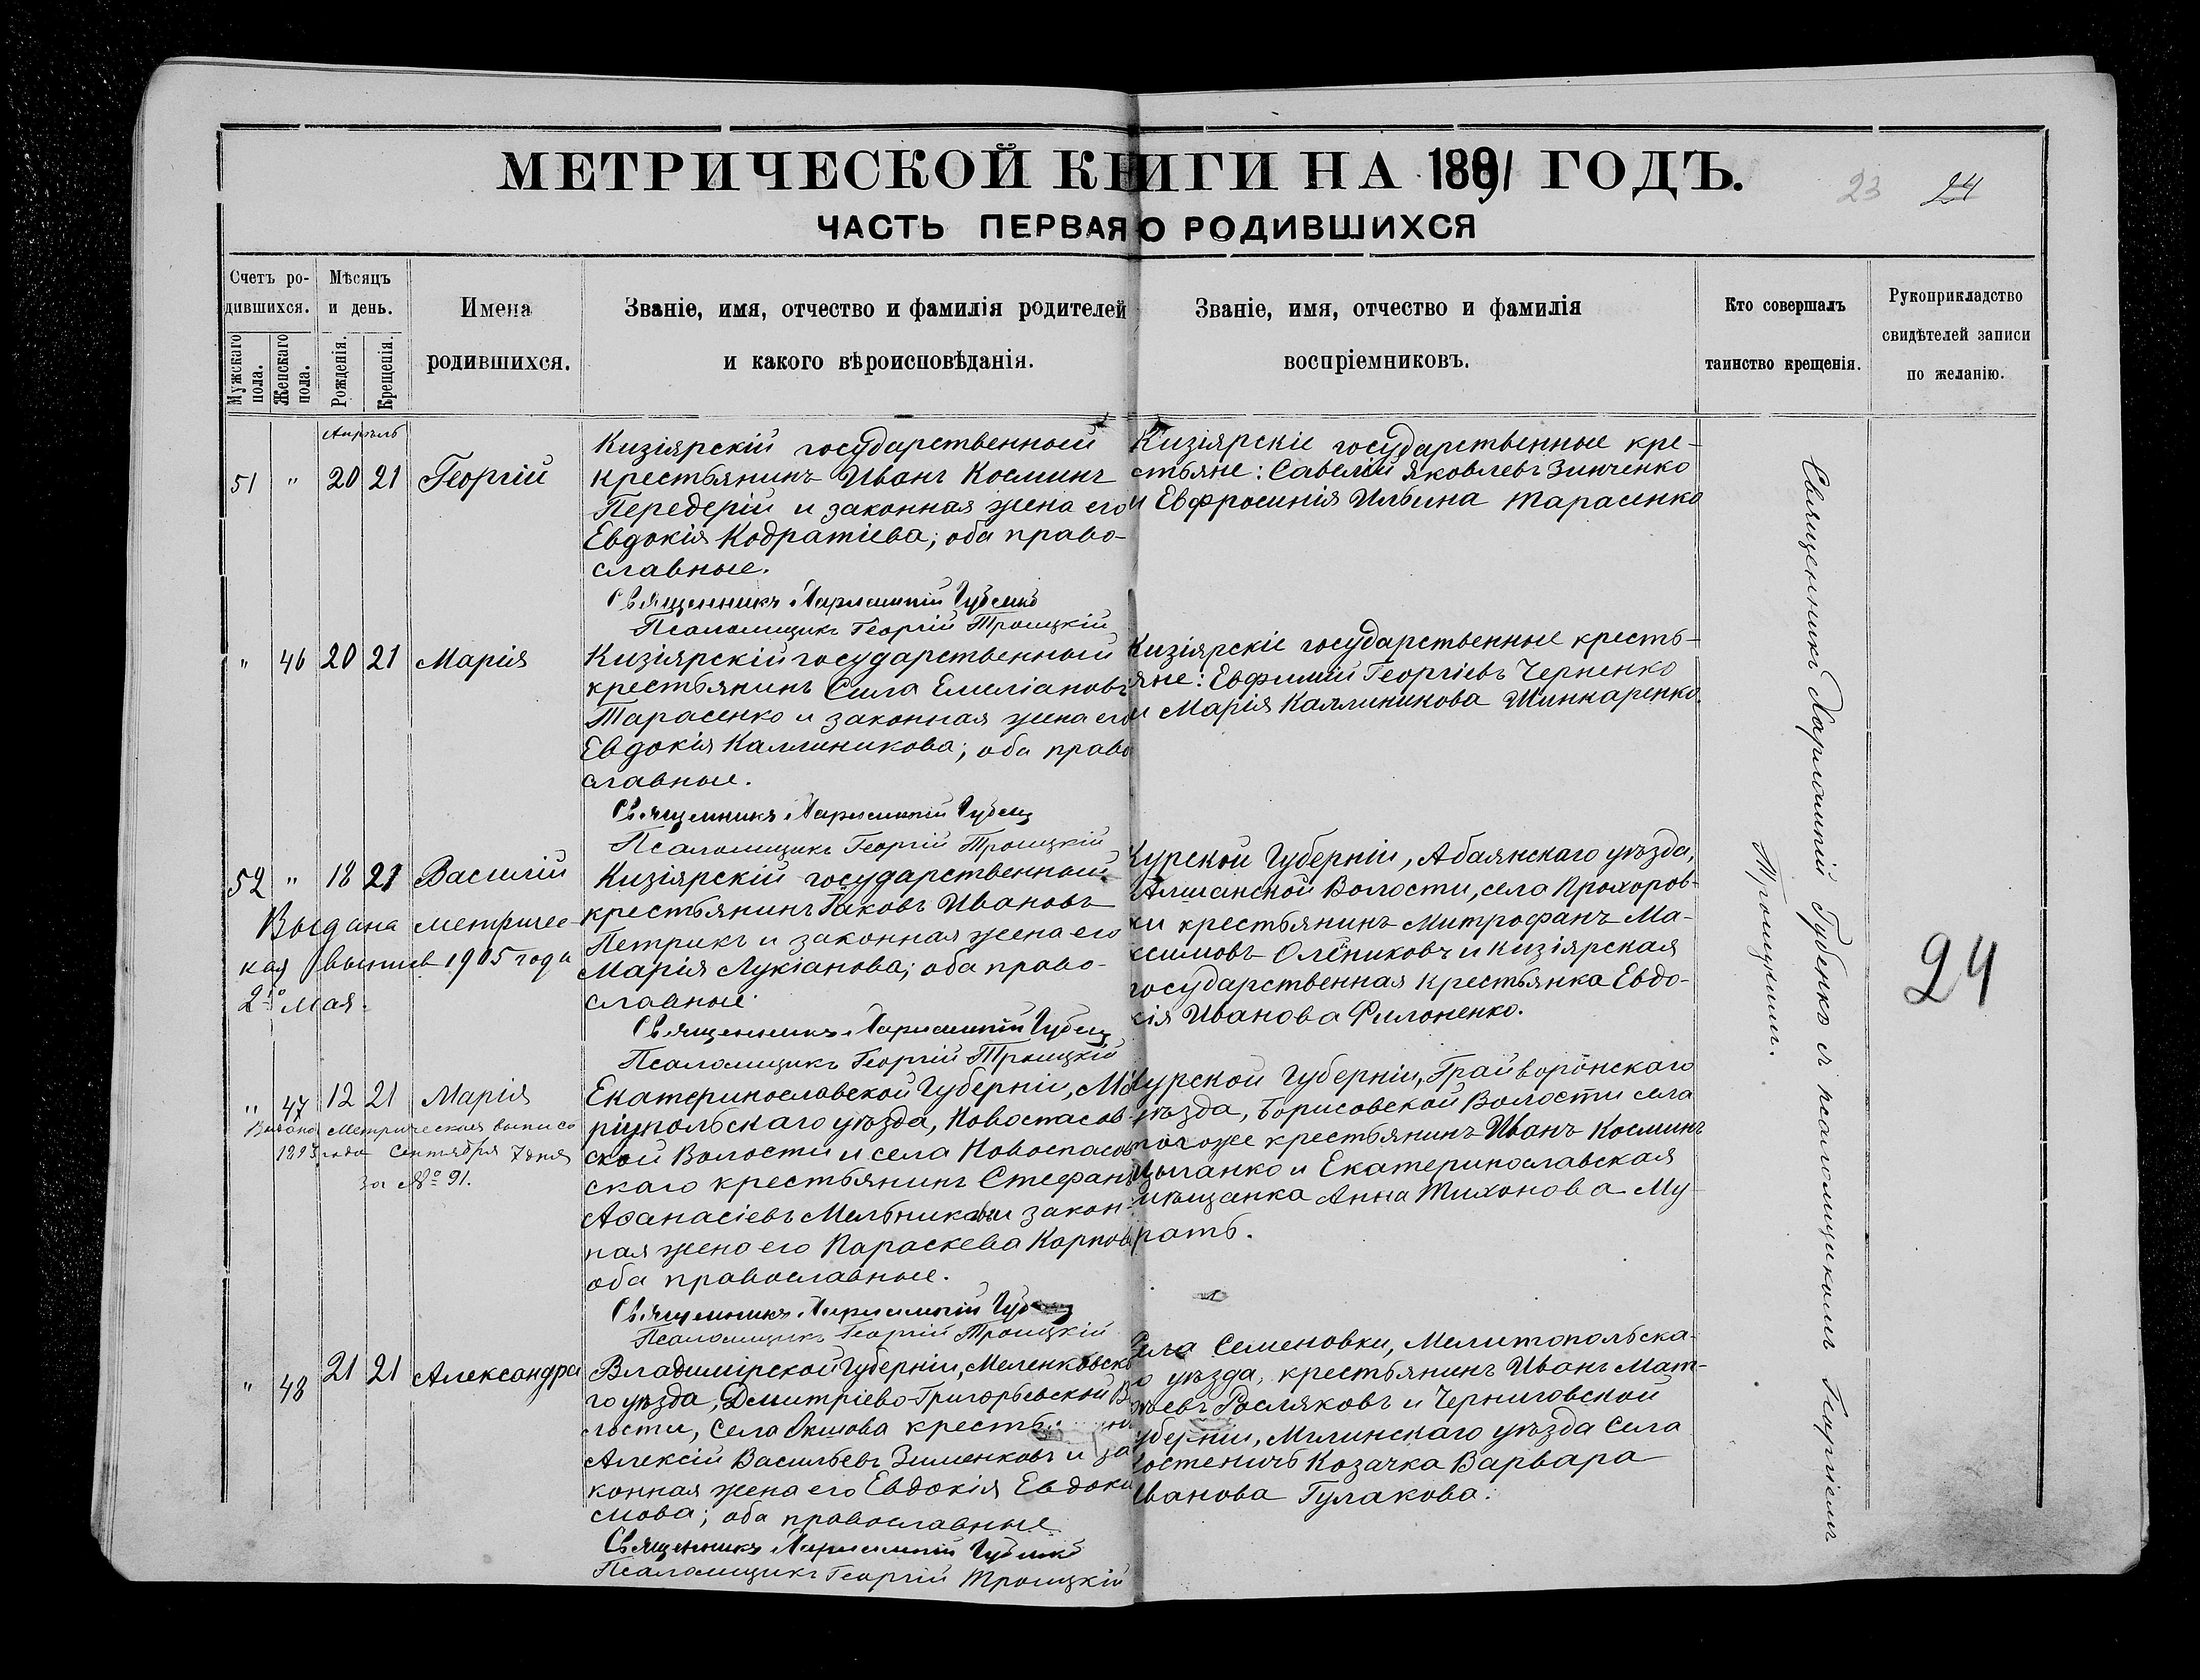 МЕТРИЧЕСКОЙ КНИГИ НА 1891 ГОДЪ.
23 24
ЧАСТЬ ПЕРВАЯ О РОДИВШИХСЯ
Счетъ ро-
дившихся.
Мужскаго пола.
Женскаго пола.
Мѣсяцъ
и день.
Рожденія.
Крещенія.
Имена
родившихся.
Званіе, имя, отчество и фамилія родителей
и какого вѣроисповѣданія.
Званіе, имя, отчество и фамилія
воспріемниковъ.
Кто совершалъ
таинство крещенія.
Рукоприкладство
свидѣтелей записи
по желанію.
Апрѣль
51 " 20 21 Георгій
Кизіярскій государственный
крестьянинъ Иванъ Косминъ
Передерій и законная жена его
Евдокія Кодратіева; оба право-
славные.
Священникъ Харлампій Губенко
Псаломщикъ Георгій Троицкій
Кизіярскіе государственные кре-
стьяне: Савелій Яковлевъ Зинченко
и Евфросинія Ильина Тарасенко
" 46 20 21 Марія
Кизіярскій государственный
крестьянинъ Сила Емеліановъ
Тарасенко и законная жена его
Евдокія Каллиникова; оба право
славные.
Священникъ Харлампій Губенко
Псаломщикъ Георгій Троицкій
Кизіярскіе государственные кресть-
яне: Евфимій Георгіевъ Черненко
и Марія Каллиникова Шинкаренко.
52 " 18 21 Василій
Выдана метричес-
кая выпись 1905 года
2го мая.
Кизіярскій государственный
крестьянинъ Іаковъ Ивановъ
Петрикъ и законная жена его
Марія Лукіанова; оба право-
славные.
Священникъ Харлампій Губенко
Псаломщикъ Георгій Троицкій
Курской Губерніи, Абаянскаго уѣзда,
Алшанской Волости, села Прохоров-
ки крестьянинъ Митрофанъ Ма-
ксимовъ Олейниковъ и Кизіярская
государственная крестьянка Евдо-
кія Иванова Филоненко.
" 47 12 21 Марія
Выдана Метрическая выпись
1893 года Сентября 7 дня
за № 91.
Екатеринославской Губерніи, Ма
ріупольскаго уѣзда, Новоспасов-
ской Волости и села Новоспасов
скаго крестьянинъ Стефанъ
Аѳанасіевъ Мельниковъ и закон-
ная жена его Параскева Карпова
оба православные.
Священникъ Харлампій Губенко
Псаломщикъ Георгій Троицкій
Курской Губерніи, Грайворонскаго
уѣзда, Борисовской Волости села
того же крестьянинъ Иванъ Косминъ
Цыганко и Екатеринославская
мѣщанка Анна Тихонова Му-
рать.
" 48 21 21 Александра
Владимірской Губерніи, Меленковска
го уѣзда, Дмитріево-Григорьевской В
лости, Села Окшова кресть
Алексій Васильевъ Зименковъ и за
конная жена его Евдокія Евдоки
мова; оба православные
Священникъ Харлампій Губенко
Псаломщикъ Георгій Троицкій
Села Семеновки, Мелитопольска-
го уѣзда, крестьянинъ Иванъ Мат-
ѳеевъ Росляковъ и Черниговской
Губерніи, Мглинскаго уѣзда Села
Костеничь Козачка Варвара
Иванова Гулакова.
Священникъ Харлампій Губенко я псаломщикомъ Георгіемъ
Троицкимъ.
24